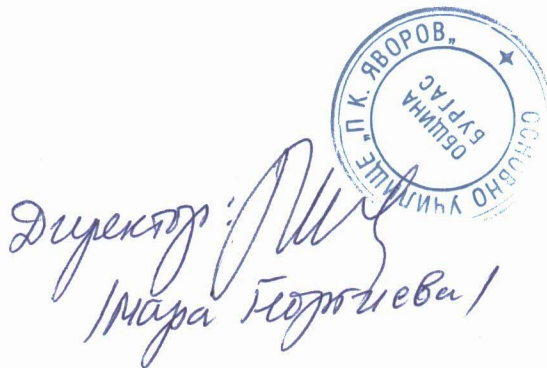 ОСНОВНО УЧИЛИЩЕ „П.К. ЯВОРОВ„
ОБЩИНА
БУРГАС
Директор:
/Мара Георгиева/